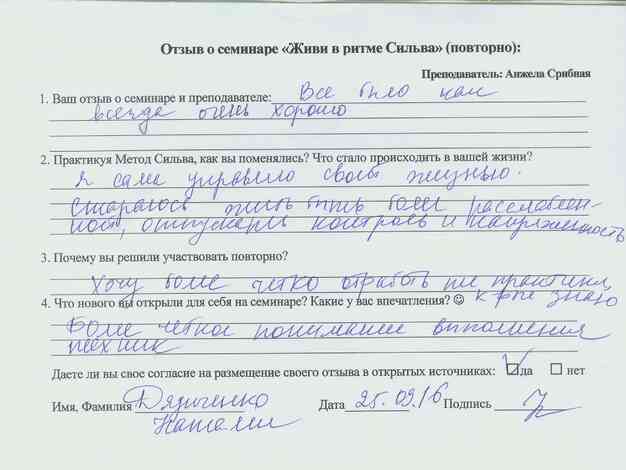 Отзыв о семинаре «Живи в ритме Сильва» (повторно):
Преподаватель: Анжела Срибная
1. Ваш отзыв о семинаре и преподавателе: Все было как
всегда очень хорошо
2. Практикуя Метод Сильва, как вы поменялись? Что стало происходить в вашей жизни?
Я сама управляю своей жизнью.
Стараюсь быть более расслаблен-
ной, отпускать контроль и напряженность
3. Почему вы решили участвовать повторно?
Хочу более четко практики,
4. Что нового вы открыли для себя на семинаре? Какие у вас впечатления? ☺ знаю
Более четкое понимание выполнения
техник
Даете ли вы свое согласие на размещение своего отзыва в открытых источниках: да нет
Имя, Фамилия Дата 25.09.16 Подпись